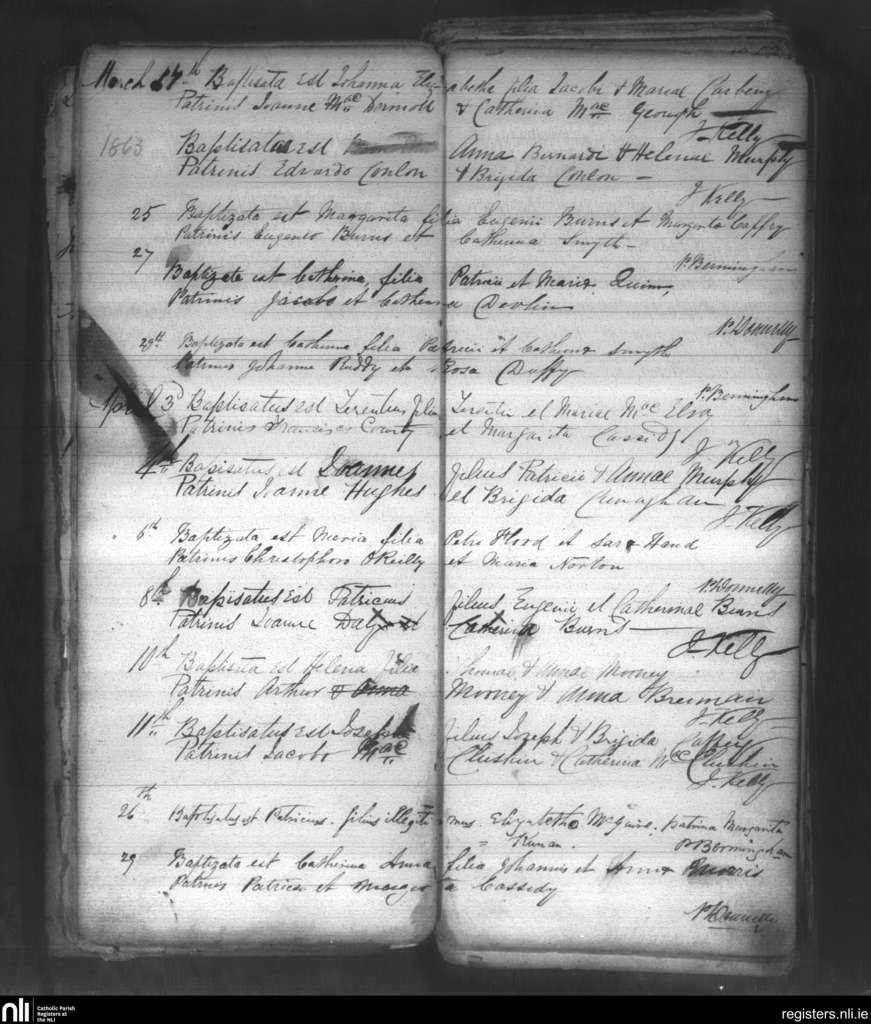 March 17th Baptisata est Johanna Elizabetha filia Jacobi & Mariae Carbery
Patrinis Joanne Mac Dermott & Catherina Mac Geough
J Kelly
1863 Baptisatus est Anna Bernardi & Helenae Murphy
Patrinis Edvardo Conlon & Brigida Conlon
J Kelly
25 Baptizata est Margarita filia Eugenii Burns et Margarita Caffry
Patrinis Eugenio Burns et Catherina Smyth
P. Bermingham
27 Baptizata est Catherina, filia Patricii et Maria Quinn,
Patrinis Jacobo et Catherina Devlin
P. Donnelly
29th Baptizata est Catherina filia Patricii et Catherina Smyth
Patrinis Johanne Ruddy et Rosa Duffy
P. Bermingham
April 3d Baptisatus est Terentius filius Terentii et Mariae Mac Elroy
Patrinis Francisco Courty et Margarita Cassidy
J Kelly
4th Bapisatus est Joannes filius Patricii & Annae Murphy
Patrinis Joanne Hughes et Brigida
J Kelly
6th Baptizata est Maria filia Petri Flood et Sara Hand
Patrinis Christophoro O'Reilly et Maria Norton
P. Donnelly
8th Bapisatus est Patricius filius Eugenii et Catherinae Burns
Patrinis Joanne Daly et Catherina Burns
J. Kelly
10th Baptisata est Helena filia Thomae & Annae Mooney
Patrinis Arthur & Anna Mooney & Anna Brennan
J. Kelly
11th Baptisatus est Joseph filius Joseph & Brigida
Patrinis Jacobo Mac Cluskin & Catherina Mac Cluskin
J. Kelly
26th Baptisatus est Patricius. filius illegitimus Elizabetha McGuire. patrina Margarita
Kernan. P Bermingham
29 Baptizata est Catherina Anna filia Johannis et Anna
Patrinis Patricio et Margarita Cassidy
P. Donnelly
nli Catholic Parish
Registers at
the NLI
registers.nli.ie